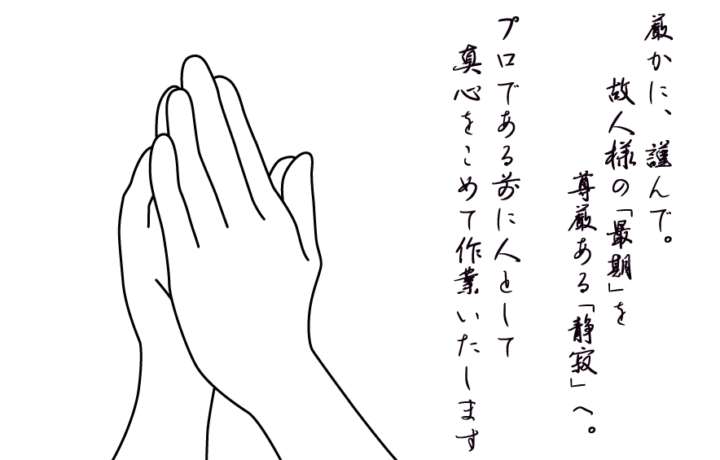 厳かに、謹んで。
故人様の「最期」を
尊厳ある「静寂」へ。
プロである前に人として
真心をこめて作業いたします